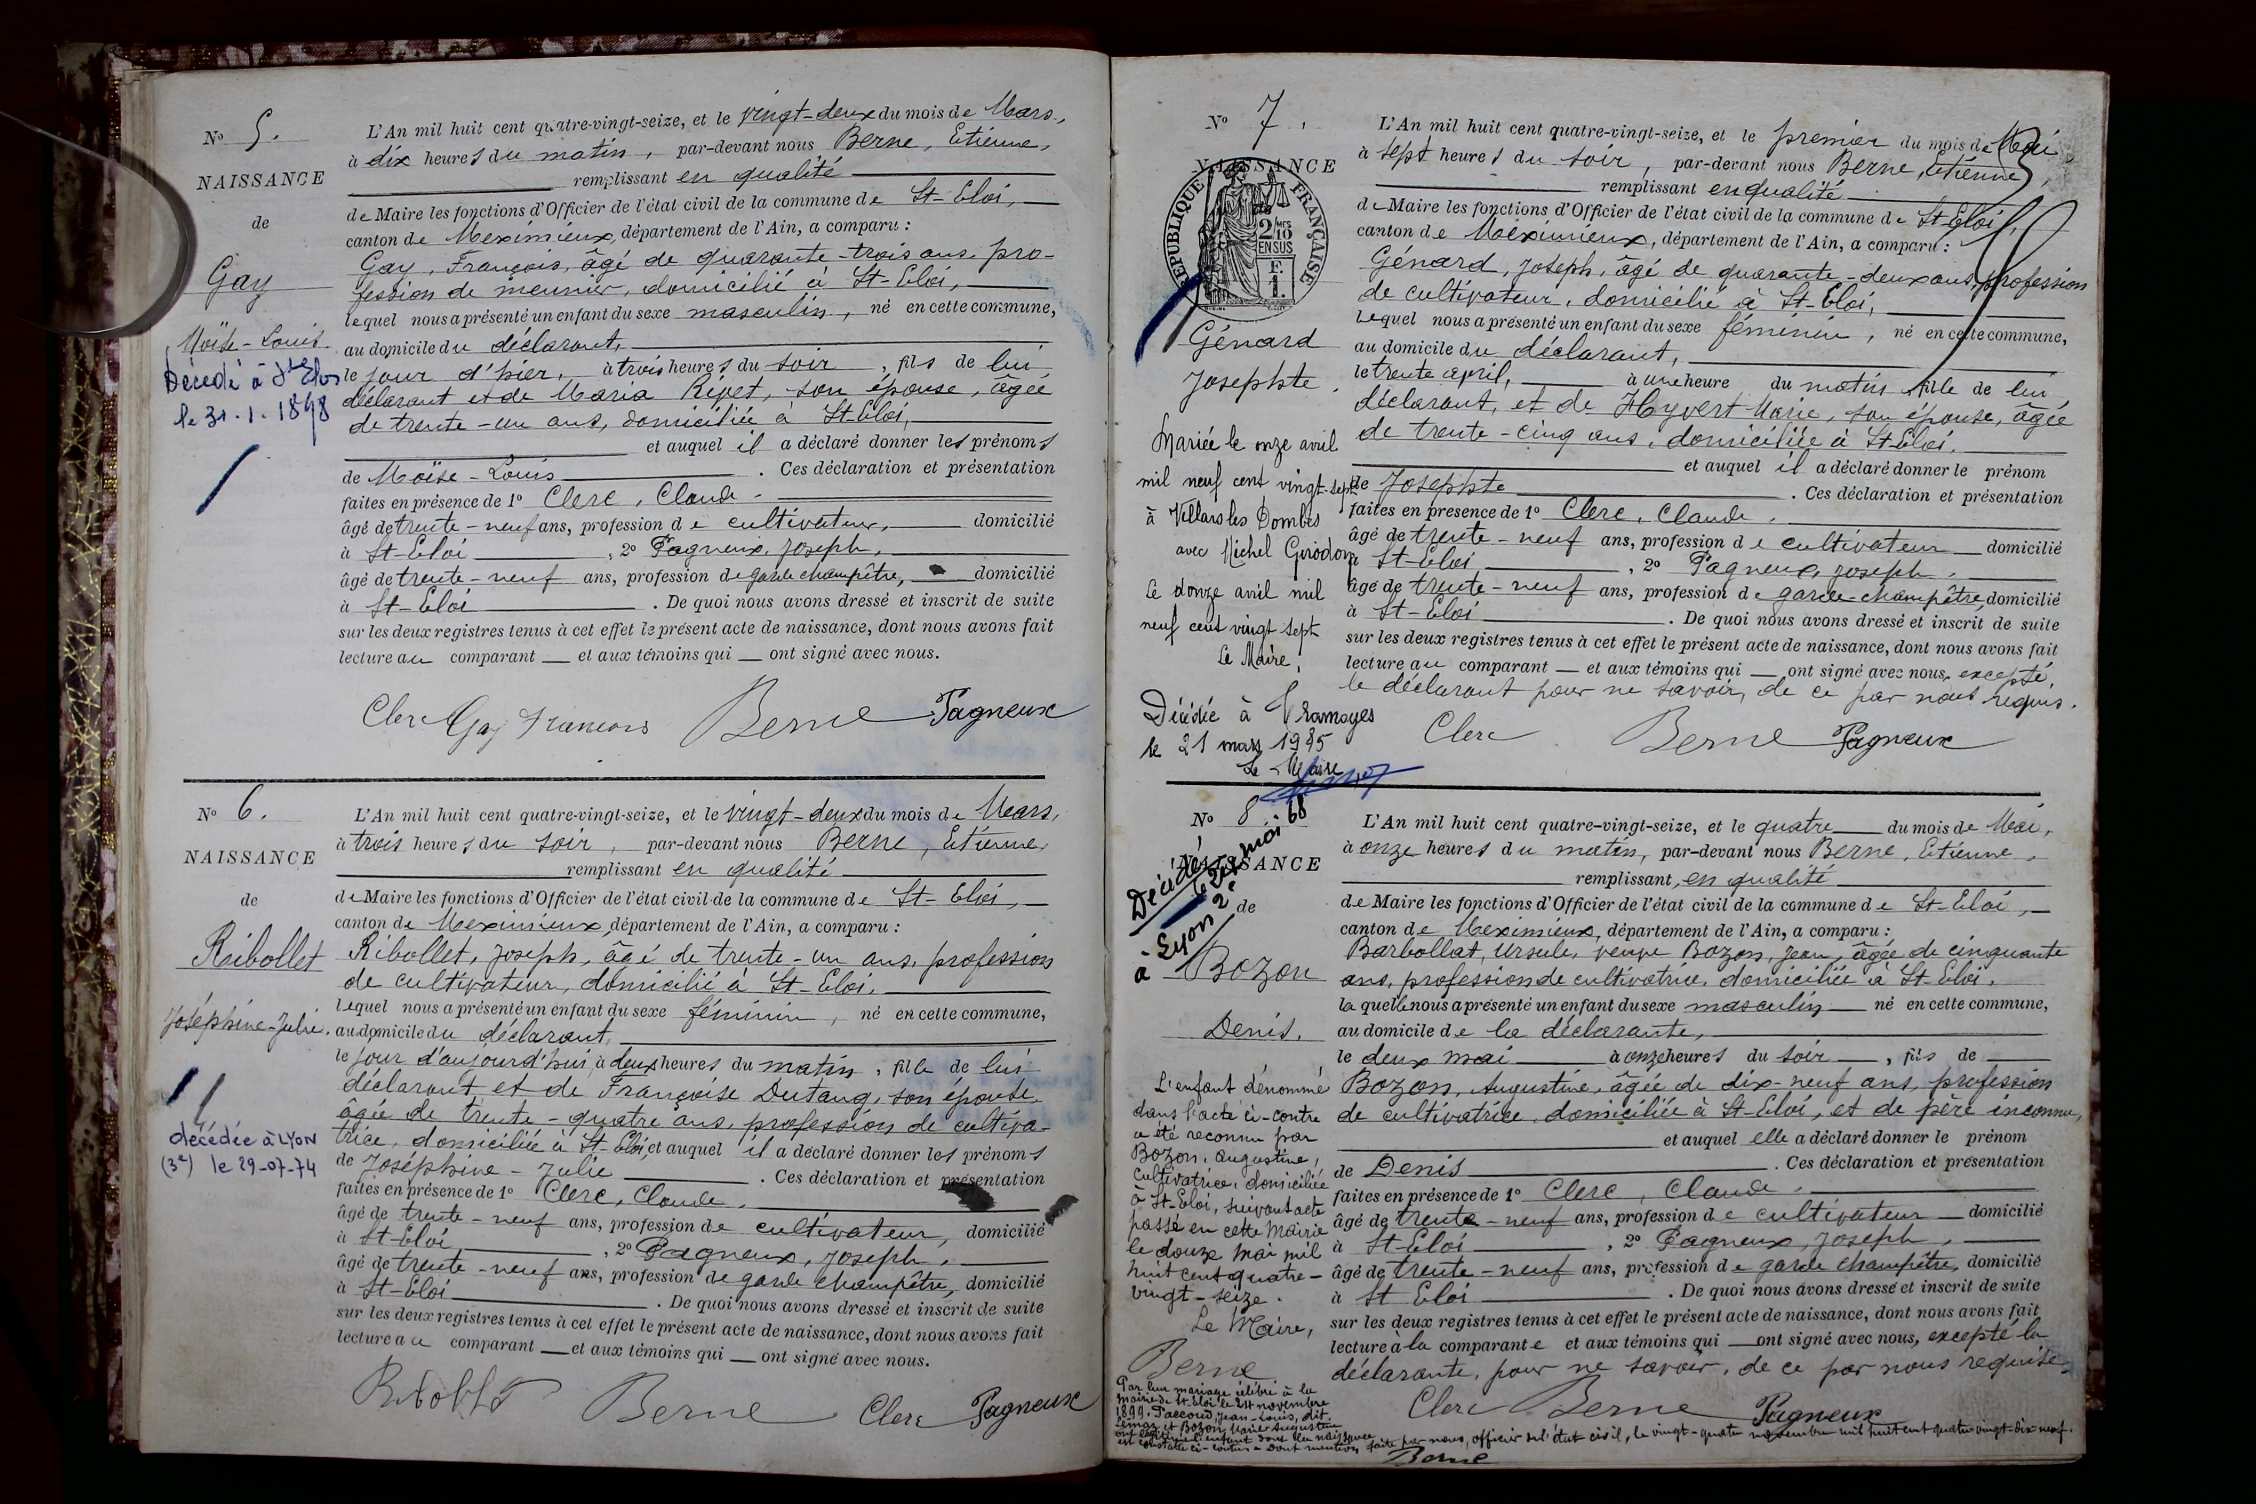 Nº 5.
NAISSANCE
de
Gay
Moïse-Louis
Décédé à St Eloi
le 31.1.1898
L'An mil huit cent quatre-vingt-seize, et le vingt-deux du mois de Mars,
à dix heures du matin, par-devant nous Berne, Etienne,
remplissant en qualité
de Maire les fonctions d'Officier de l'état civil de la commune de St-Eloi,
canton de Meximieux, département de l'Ain, a comparu :
Gay, François, âgé de quarante-trois ans, pro-
fession de meunier, domicilié à St-Eloi,
lequel nous a présenté un enfant du sexe masculin, né en cette commune,
au domicile du déclarant,
le jour d'hier, à trois heures du soir, fils de lui
déclarant et de Maria Rivet, son épouse, âgée
de trente-un ans, domiciliée à St-Eloi,
et auquel il a déclaré donner les prénoms
de Moïse-Louis. Ces déclaration et présentation
faites en présence de 1º Clerc, Claude,
âgé de trente-neuf ans, profession de cultivateur, domicilié
à St-Eloi, 2º Pagneux, Joseph,
âgé de trente-neuf ans, profession de garde champêtre, domicilié
à St-Eloi. De quoi nous avons dressé et inscrit de suite
sur les deux registres tenus à cet effet le présent acte de naissance, dont nous avons fait
lecture au comparant et aux témoins qui ont signé avec nous.
Clerc Gay Francois Berne Pagneux
Nº 6.
NAISSANCE
de
Ribollet
Joséphine-Julie.
décédée à LYON
(3e) le 29-07-74
L'An mil huit cent quatre-vingt-seize, et le vingt-deux du mois de Mars,
à trois heures du soir, par-devant nous Berne, Etienne,
remplissant en qualité
de Maire les fonctions d'Officier de l'état civil de la commune de St-Eloi,
canton de Meximieux, département de l'Ain, a comparu :
Ribollet, Joseph, âgé de trente-un ans, profession
de cultivateur, domicilié à St-Eloi,
lequel nous a présenté un enfant du sexe féminin, né en cette commune,
au domicile du déclarant,
le jour d'aujourd'hui, à deux heures du matin, fille de lui
déclarant et de Françoise Dutang, son épouse,
âgée de trente-quatre ans, profession de cultiva-
trice, domiciliée à St-Eloi, et auquel il a déclaré donner les prénoms
de Joséphine-Julie. Ces déclaration et présentation
faites en présence de 1º Clerc, Claude,
âgé de trente-neuf ans, profession de cultivateur, domicilié
à St-Eloi, 2º Pagneux, Joseph,
âgé de trente-neuf ans, profession de garde champêtre, domicilié
à St-Eloi. De quoi nous avons dressé et inscrit de suite
sur les deux registres tenus à cet effet le présent acte de naissance, dont nous avons fait
lecture au comparant et aux témoins qui ont signé avec nous.
Ribollet Berne Clerc Pagneux
Nº 7.
NAISSANCE
RÉPUBLIQUE FRANÇAISE
2/10 EN SUS
F. 1.
Génard
Josephte.
Mariée le onze avril
mil neuf cent vingt-sept
à Villars les Dombes
avec Michel Girodon
Le douze avril mil
neuf cent vingt sept
Le Maire,
Décédée à Tramoyes
le 21 mars 1985
Le Maire
L'An mil huit cent quatre-vingt-seize, et le premier du mois de Mai,
à sept heures du soir, par-devant nous Berne, Etienne,
remplissant en qualité
de Maire les fonctions d'Officier de l'état civil de la commune de St-Eloi,
canton de Meximieux, département de l'Ain, a comparu :
Génard, Joseph, âgé de quarante-deux ans, profession
de cultivateur, domicilié à St-Eloi,
lequel nous a présenté un enfant du sexe féminin, né en cette commune,
au domicile du déclarant,
le trente avril, à une heure du matin fille de lui
déclarant, et de Hyvert Marie, son épouse, âgée
de trente-cinq ans, domiciliée à St-Eloi.
et auquel il a déclaré donner le prénom
de Josephte. Ces déclaration et présentation
faites en présence de 1º Clerc, Claude,
âgé de trente-neuf ans, profession de cultivateur domicilié
à St-Eloi, 2º Pagneux, Joseph,
âgé de trente-neuf ans, profession de garde-champêtre, domicilié
à St-Eloi. De quoi nous avons dressé et inscrit de suite
sur les deux registres tenus à cet effet le présent acte de naissance, dont nous avons fait
lecture au comparant et aux témoins qui ont signé avec nous, excepté
le déclarant pour ne savoir, de ce par nous requis.
Clerc Berne Pagneux
Nº 8.
NAISSANCE
de
Décédé
le 24 mai 68
à Lyon 2e
Bozon
Denis.
L'enfant dénommé
dans l'acte ci-contre
a été reconnu par
Bozon, Augustine,
cultivatrice, domiciliée
à St-Eloi, suivant acte
passé en cette Mairie
le douze Mai mil
huit cent quatre-
vingt-seize.
Le Maire,
Berne
L'An mil huit cent quatre-vingt-seize, et le quatre du mois de Mai,
à onze heures du matin, par-devant nous Berne, Etienne,
remplissant, en qualité
de Maire les fonctions d'Officier de l'état civil de la commune de St-Eloi,
canton de Meximieux, département de l'Ain, a comparu :
Barbollat, Ursule, veuve Bozon, Jean, âgée de cinquante
ans, profession de cultivatrice, domiciliée à St-Eloi,
laquelle nous a présenté un enfant du sexe masculin né en cette commune,
au domicile de la déclarante,
le deux mai à onze heures du soir, fils de
Bozon, Augustine, âgée de dix-neuf ans, profession
de cultivatrice, domiciliée à St-Eloi, et de père inconnu,
et auquel elle a déclaré donner le prénom
de Denis. Ces déclaration et présentation
faites en présence de 1º Clerc, Claude,
âgé de trente-neuf ans, profession de cultivateur domicilié
à St-Eloi, 2º Pagneux, Joseph,
âgé de trente-neuf ans, profession de garde champêtre, domicilié
à St Eloi. De quoi nous avons dressé et inscrit de suite
sur les deux registres tenus à cet effet le présent acte de naissance, dont nous avons fait
lecture à la comparante et aux témoins qui ont signé avec nous, excepté la
déclarante, pour ne savoir, de ce par nous requise.
Clerc Berne Pagneux
Par leur mariage célébré à la
Mairie de St-Eloi le 24 novembre
1899, Paccoud, Jean-Louis, dit
et Bozon, Marie Augustine
ont légitimé l'enfant dont la naissance
est constatée ci-contre. Dont mention faite par nous, officier de l'état civil, le vingt-quatre novembre mil huit cent quatre vingt-dix-neuf.
Berne